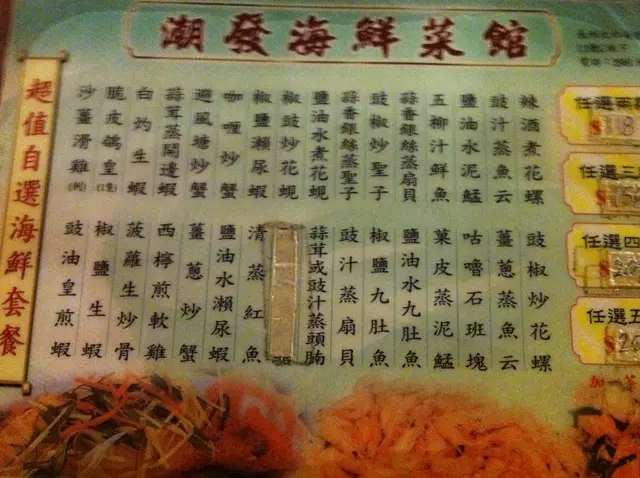 潮發海鮮菜館
超值自選海鮮套餐
辣酒煮花螺
豉汁蒸魚云
鹽油水泥鯭
五柳汁鮮魚
蒜香銀絲蒸扇貝
豉椒炒聖子
蒜香銀絲蒸聖子
鹽油水煮花蜆
椒豉炒花蜆
椒鹽瀨尿蝦
咖喱炒蟹
避風塘炒蟹
蒜茸蒸開邊蝦
白灼生蝦
脆皮鴿皇(1隻)
沙薑滑雞(例)
豉椒炒花螺
薑蔥蒸魚云
咕嚕石班塊
菓皮蒸泥鯭
鹽油水九肚魚
椒鹽九肚魚
豉汁蒸扇貝
蒜茸或豉汁蒸頭腩
清蒸紅魚
鹽油水瀨尿蝦
薑蔥炒蟹
西檸煎軟雞
菠蘿生炒骨
椒鹽生蝦
豉油皇煎蝦
任選兩
$118
任選三
任選四
任選五